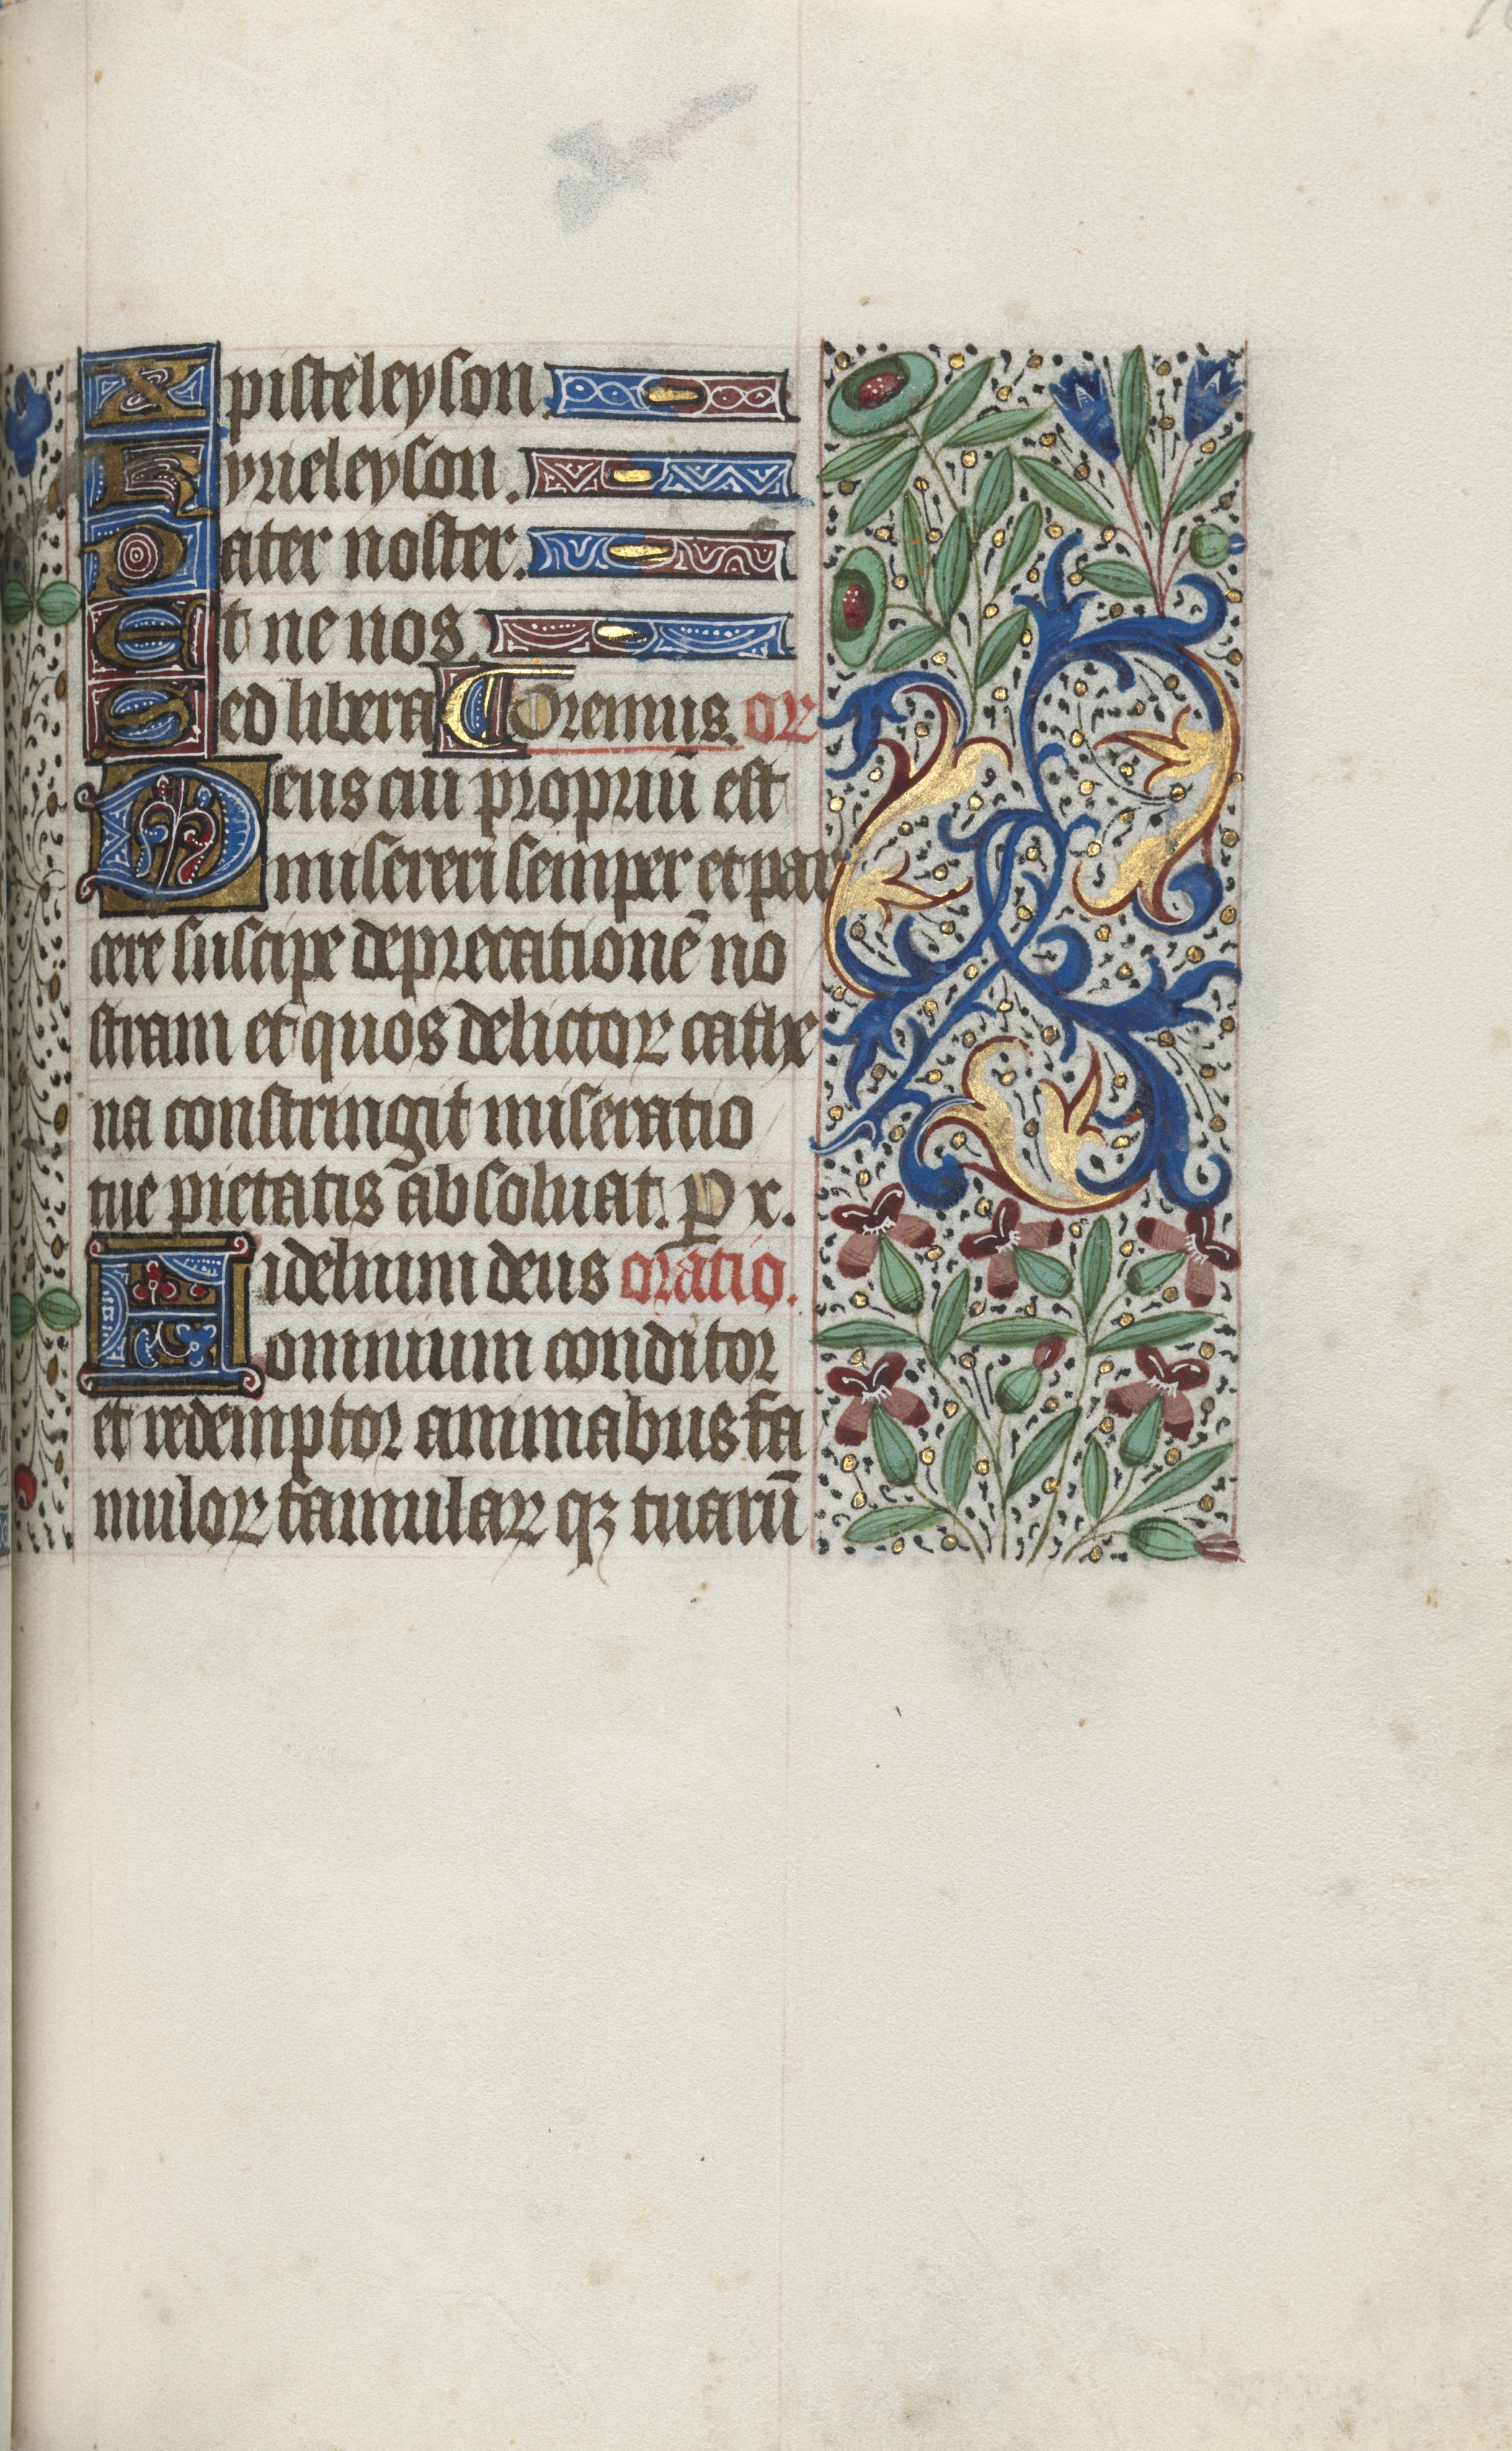 Xpisteleyson.
Kyrieleyson.
Pater noster.
Et ne nos.
Sed libera Oremus. or
Deus cui propriū est
misereri semper et par
cere suscipe deprecationē no
stram et quos delictoꝝ cathe
na constringit miseratio
tue pietatis absoluat. P x.
Fidelium deus oratio.
omnium conditor
et redemptor animabus fa
muloꝝ famulaꝝ qꝫ tuarū